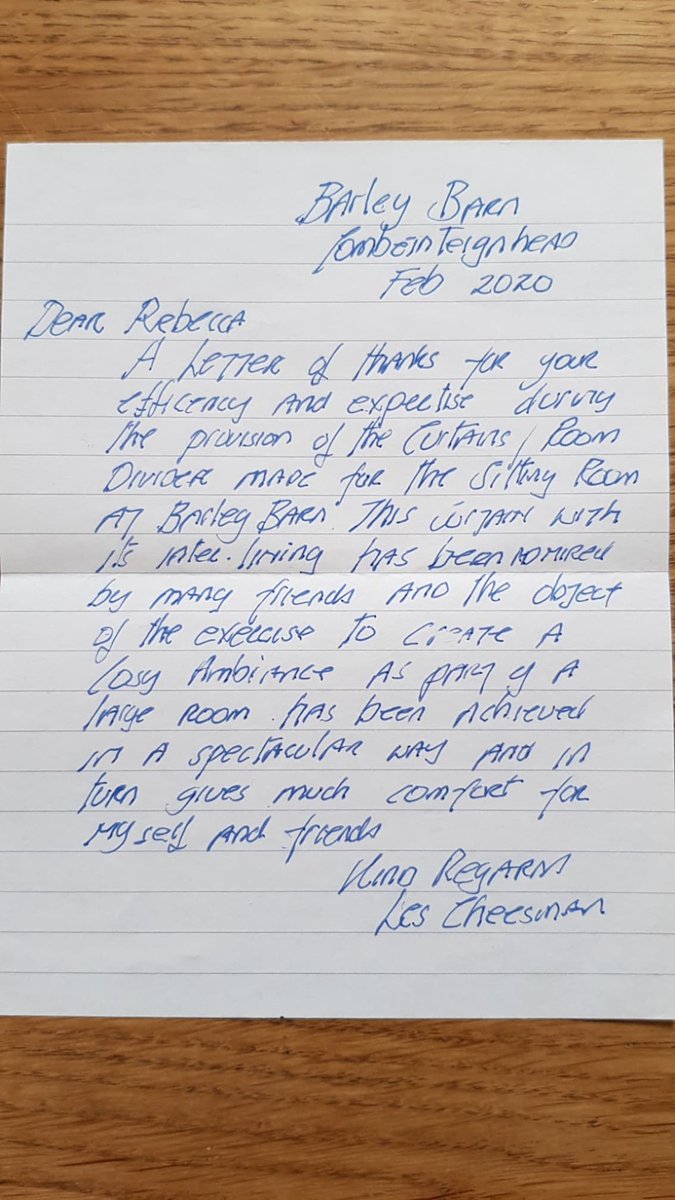 Barley Barn
Combeinteignhead
Feb 2020
Dear Rebecca
A Letter of thanks for your
efficency and expertise during
the provision of the Curtains / Room
Divider made for the Sitting Room
at Barley Barn. This curtain with
its inter-lining has been admired
by many friends and the object
of the exercise to create a
Cosy Ambiance as part of a
large room has been achieved
in a spectacular way and in
turn gives much comfort for
myself and friends
Kind Regards
Les Cheesman